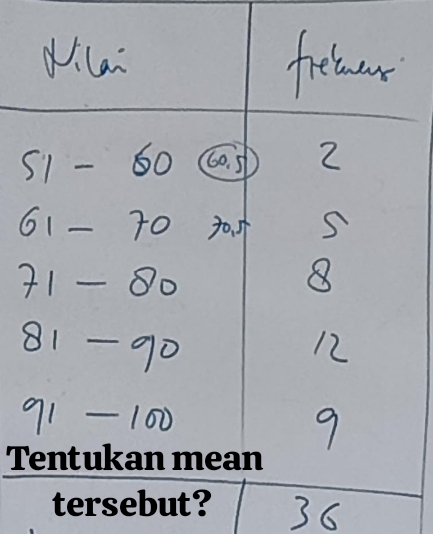 Nilai frekuensi
51 - 60 60,5 2
61 - 70 70,5 5
71 - 80 8
81 - 90 12
91 - 100 9
Tentukan mean
tersebut?
36